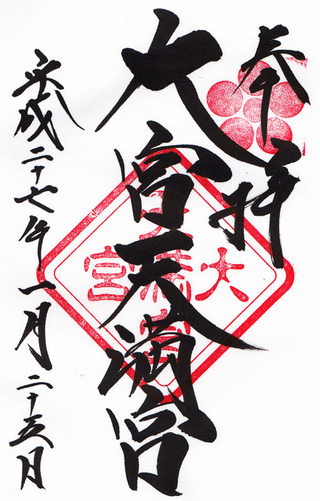 奉拝
大宮天満宮
平成二十七年一月二十五日
大
宮